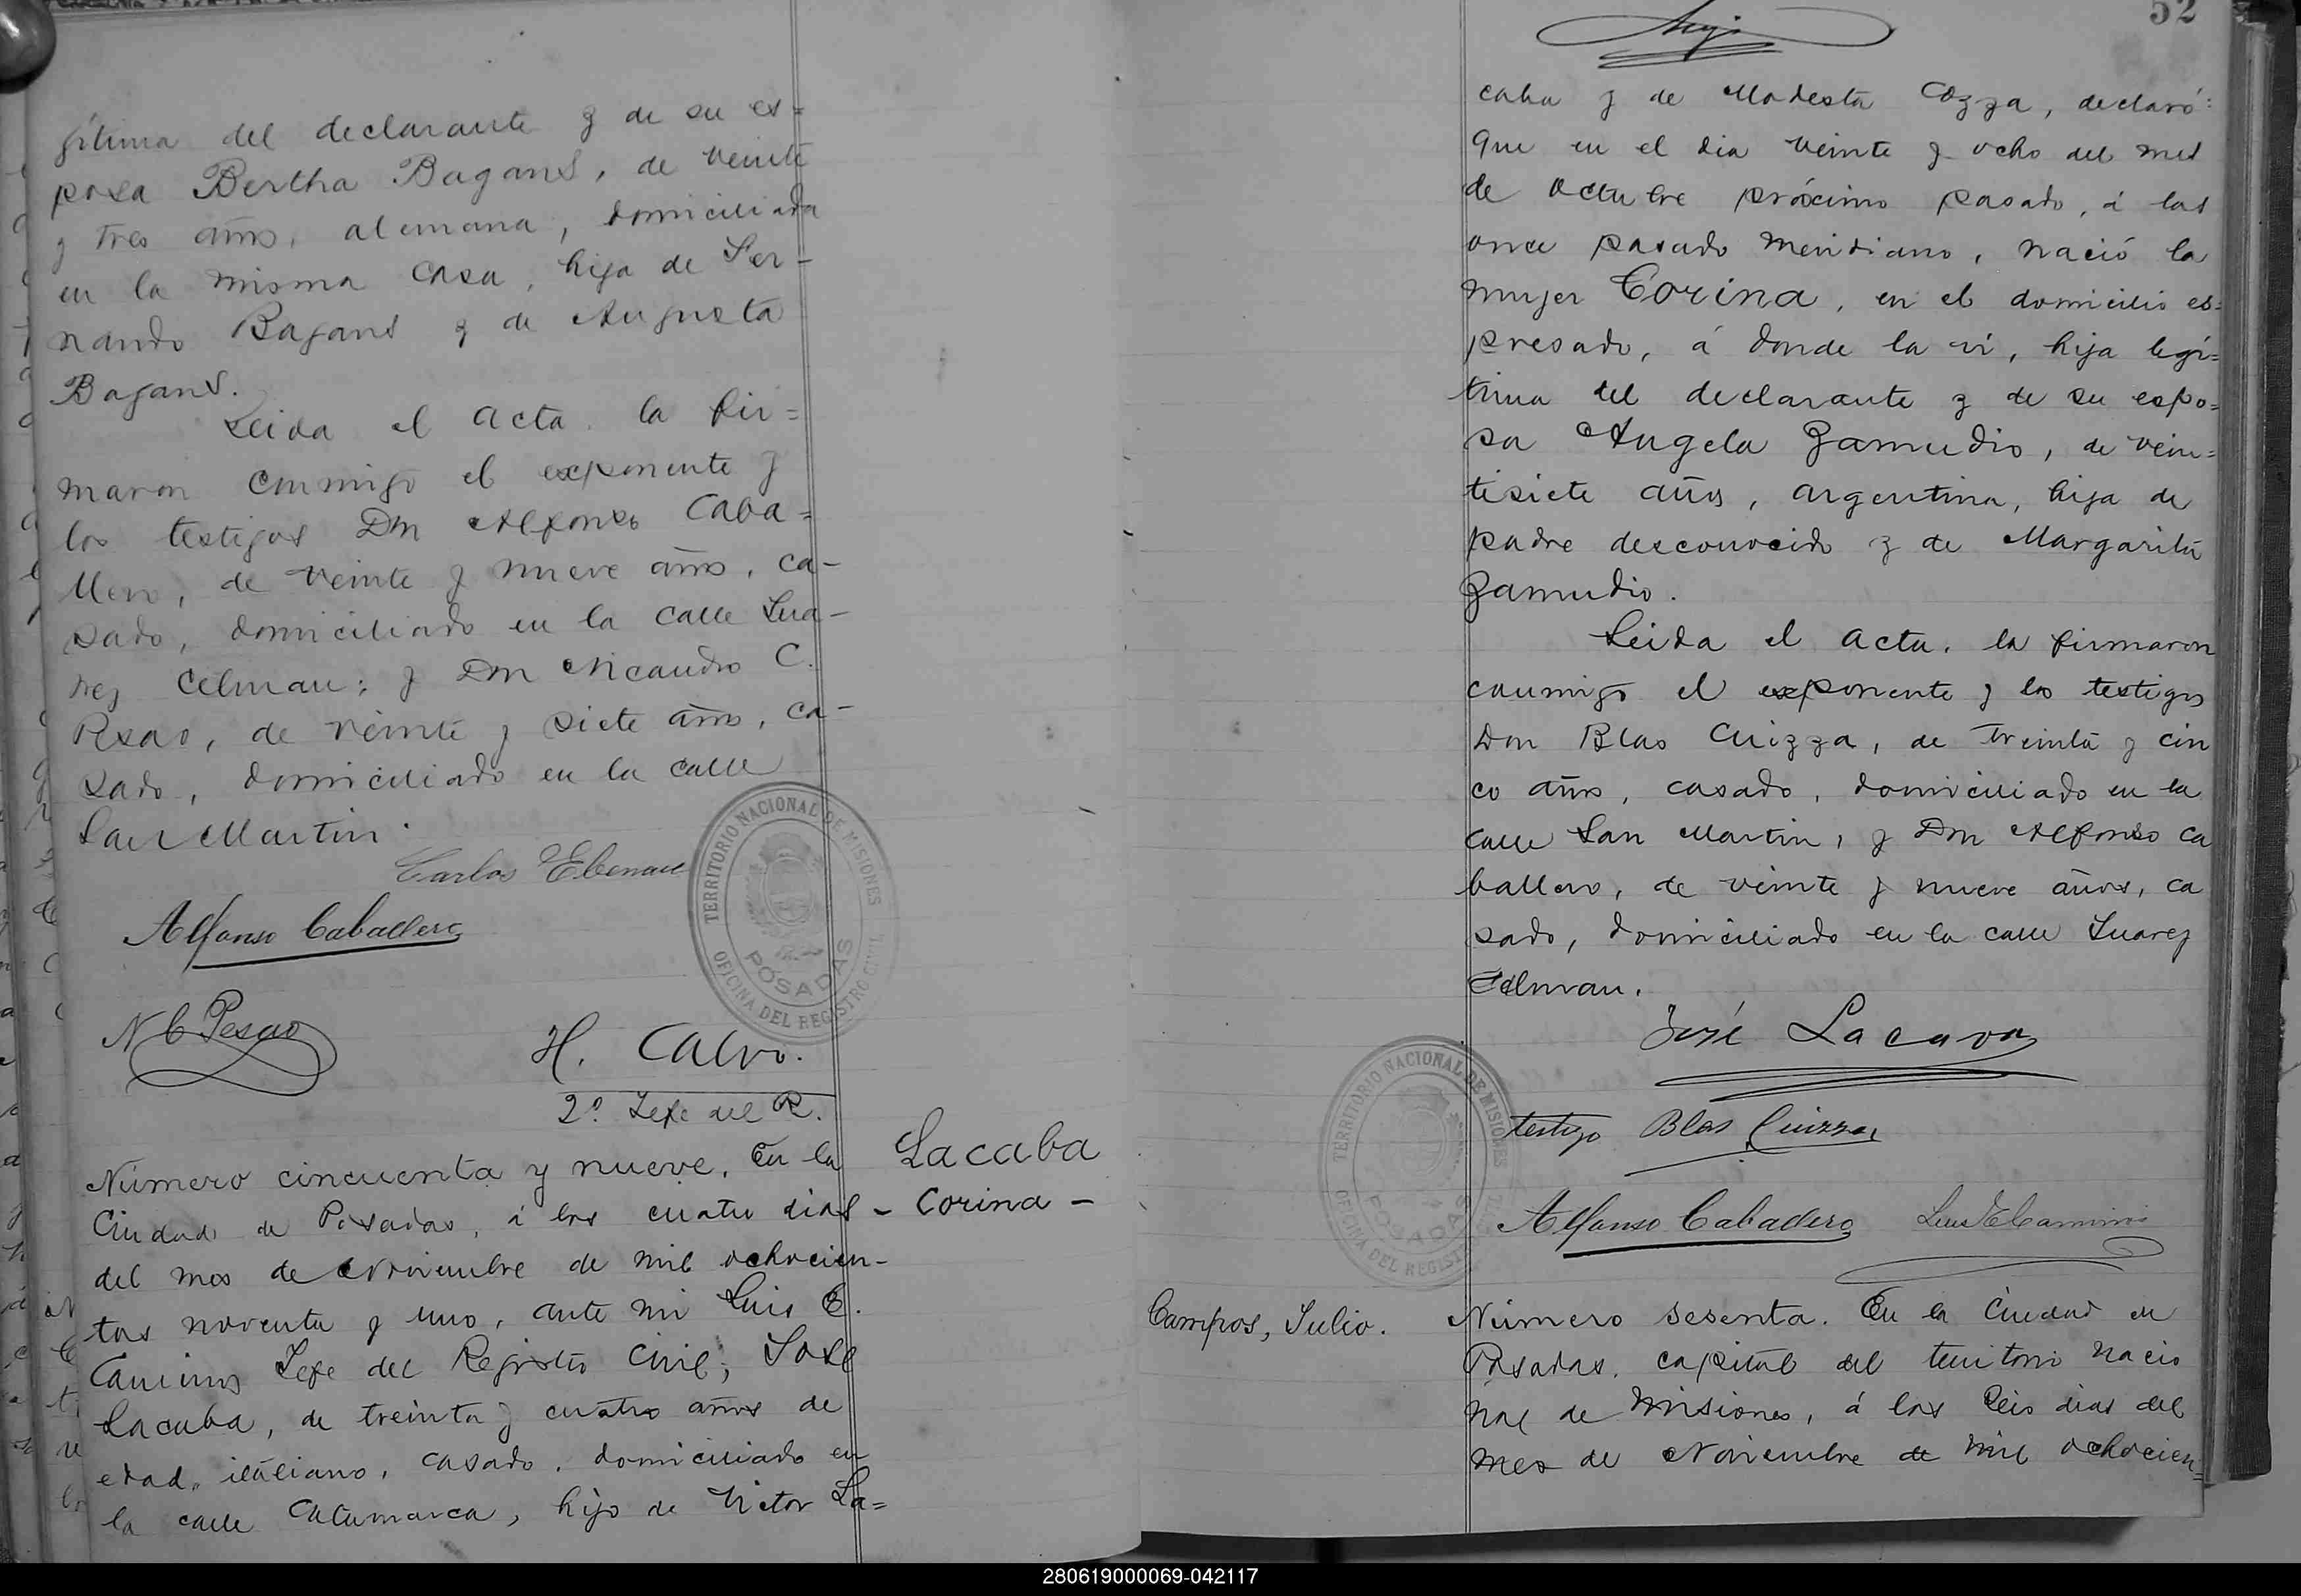 gítima del declarante y de su es=
posa Bertha Bagans, de veinte
y tres años, alemana, domiciliada
en la misma casa, hija de Fer-
nando Bagans y de Augusta
Bagans.
Leida el acta, la fir=
maron conmigo el exponente y
los testigos Dn Alfonso Caba=
llero, de veinte y nueve años, ca-
sado, domiciliado en la calle Jua-
rez Celman; y Dn Nicandro C.
Pesao, de veinte y siete años, ca-
sado, domiciliado en la calle
San Martin.
Carlos Ebenau
Alfonso Caballero
N C Pesao
H. Calvo.
2º Jefe del R.
TERRITORIO NACIONAL DE MISIONES
POSADAS
OFICINA DEL REGISTRO CIVIL
Lacaba
- Corina -
Número cincuenta y nueve. En la
Ciudad de Posadas, á los cuatro dias
del mes de Noviembre de mil ochocien-
tos noventa y uno, ante mi Luis E.
Caminos Jefe del Registro Civil; José
Lacaba, de treinta y cuatro años de
edad, italiano, casado, domiciliado en
la calle Catamarca, hijo de Victor La=
52
caba y de Modesta Cozza, declaró:
Que en el dia veinte y ocho del mes
de Octubre próximo pasado, á las
once pasado meridiano, nació la
mujer Corina, en el domicilio es=
presado, á donde la vi, hija legí=
tima del declarante y de su espo=
sa Angela Zamudio, de vein=
tisiete años, argentina, hija de
padre desconocido y de Margarita
Zamudio.
Leida el acta, la firmaron
conmigo el exponente y los testigos
Don Blas Cuizza, de treinta y cin
co años, casado, domiciliado en la
calle San Martin, y Dn Alfonso Ca
ballero, de veinte y nueve años, ca
sado, domiciliado en la calle Juarez
Celman.
José Lacava
testigo Blas Cuizza
Alfonso Caballero Luis E Caminos
TERRITORIO NACIONAL DE MISIONES
POSADAS
OFICINA DEL REGISTRO
Campos, Julio.
Número sesenta. En la Ciudad de
Posadas, capital del territorio nacio
nal de Misiones, á los seis dias del
mes de Noviembre de mil ochocien=
280619000069-042117